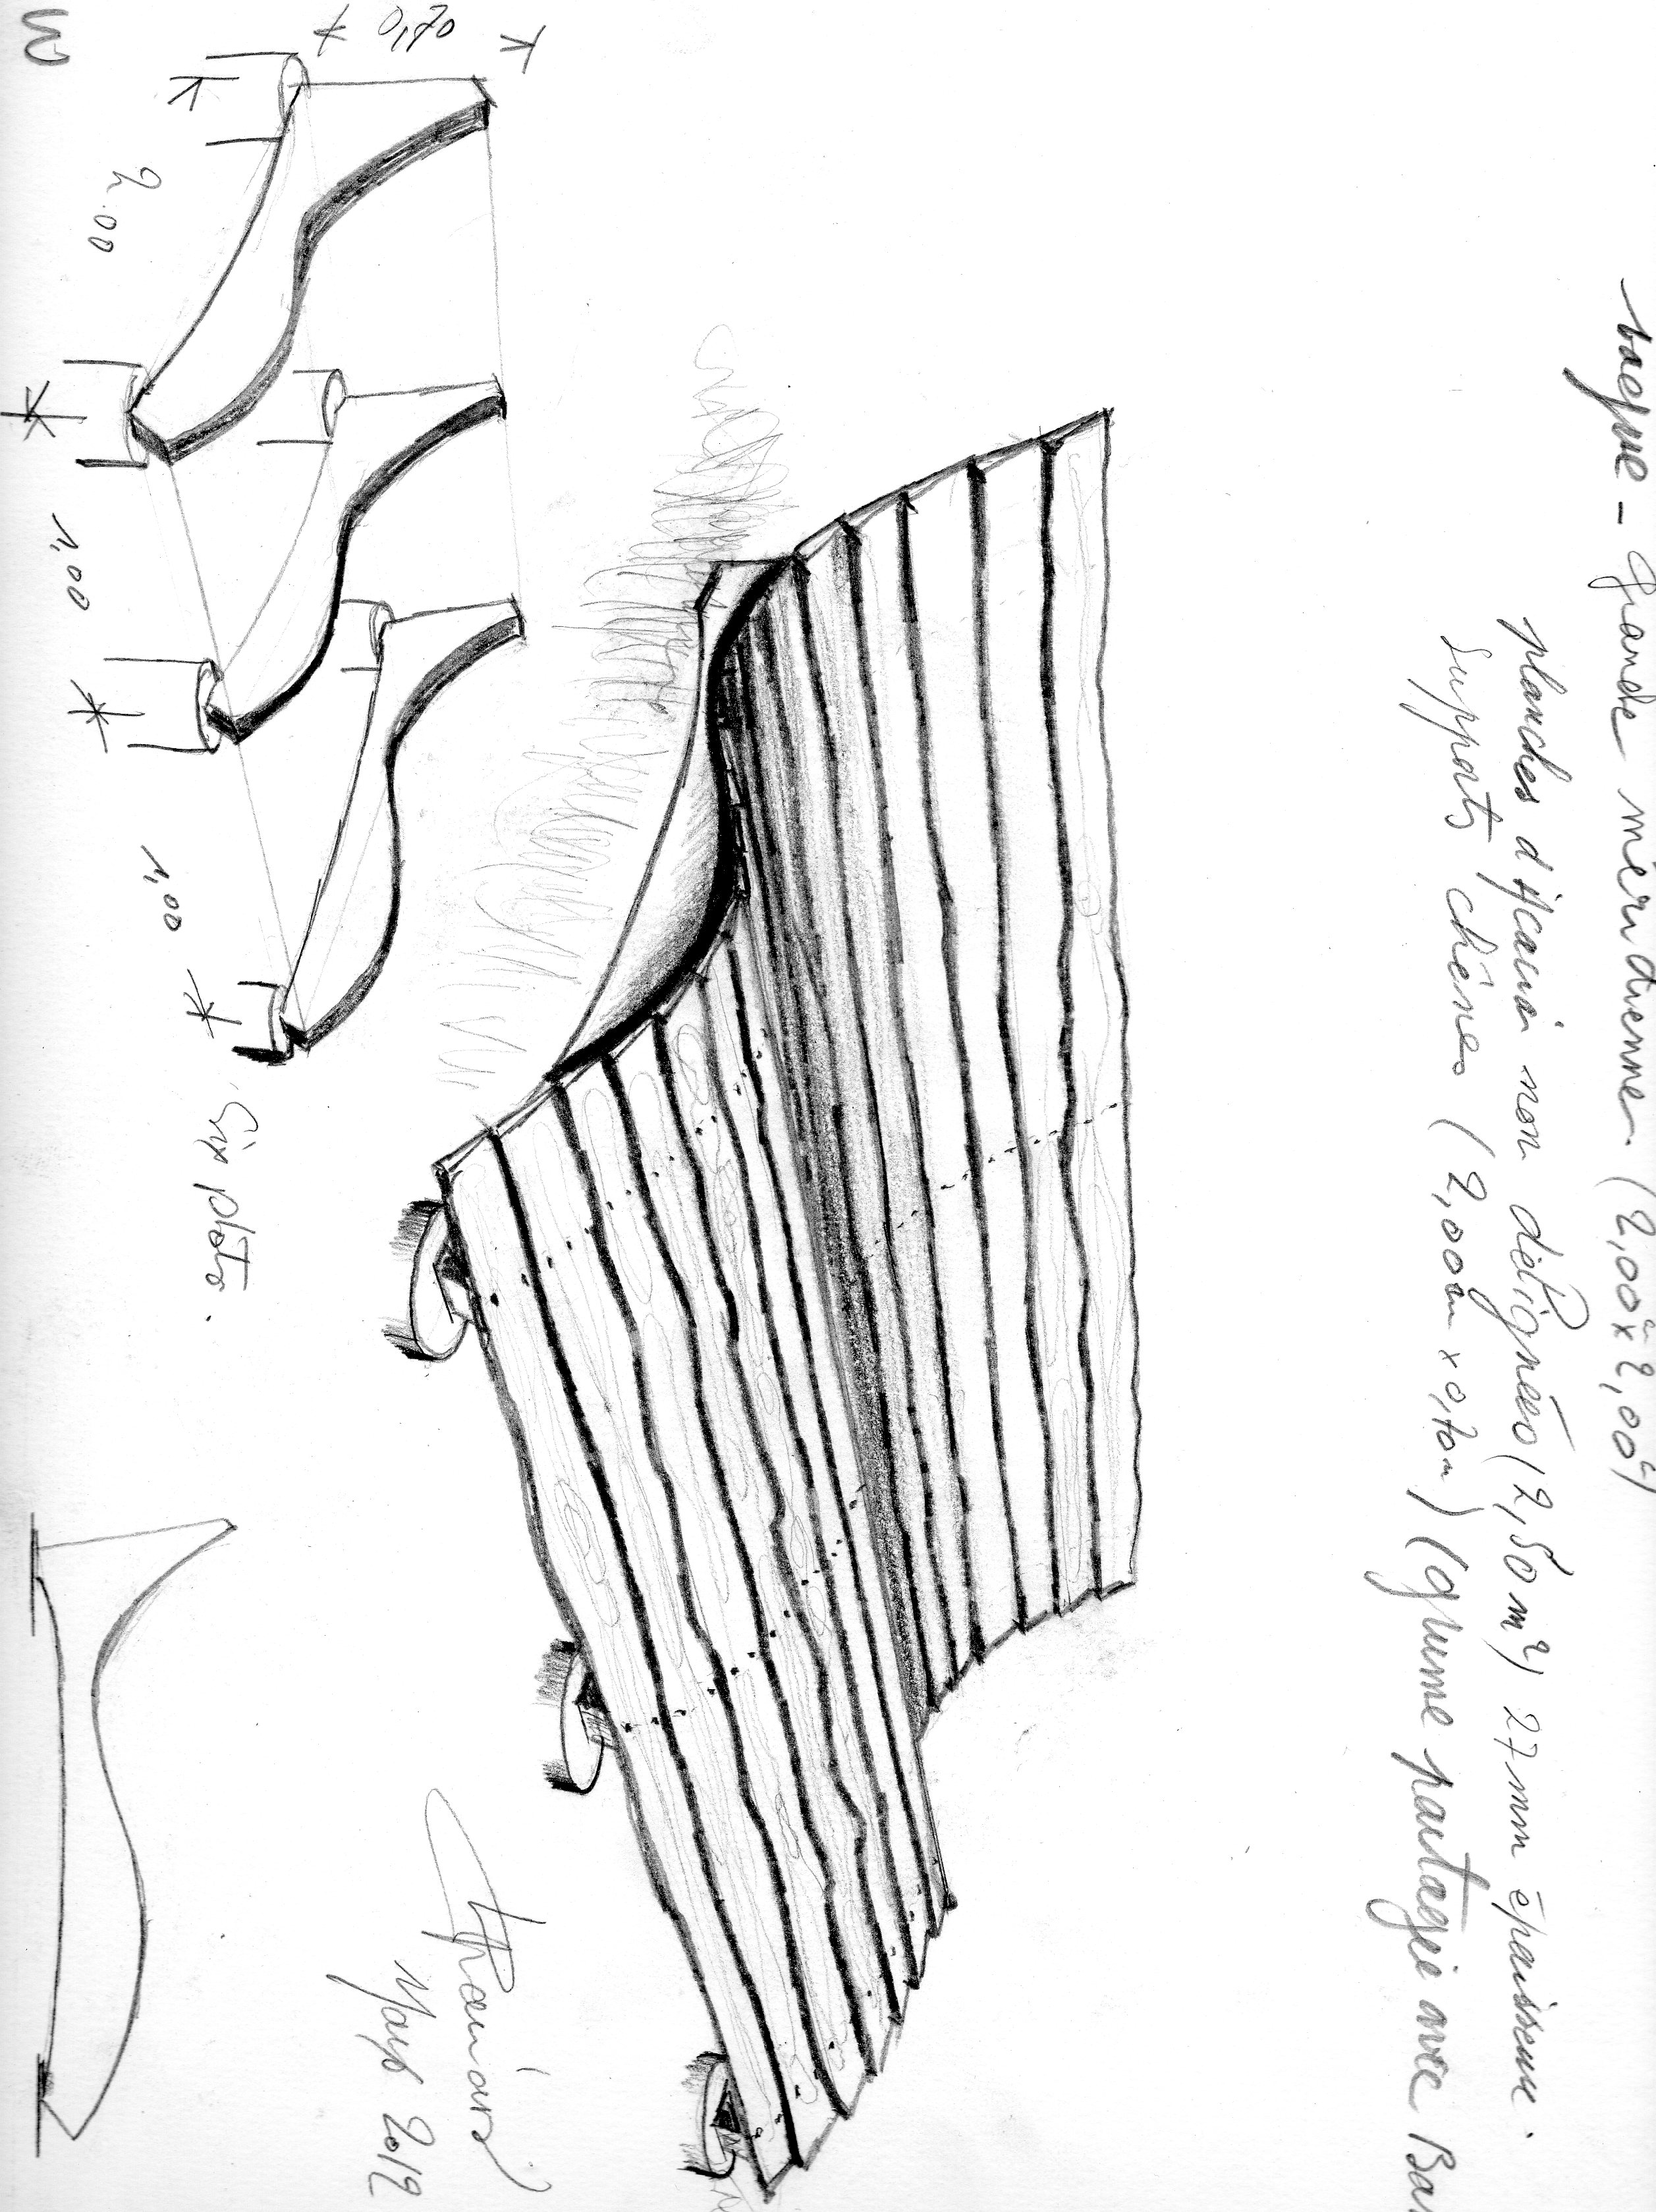 vague - grande méridienne (2,00 x 2,00)
planches d'Acacia non délignées (2,50 m²) 27 mm épaisseur.
supports chênes (2,00m x 0,70m) (grume partagée avec
0,70
2.00
1,00
1,00
Six plots.
Mars 2012
3